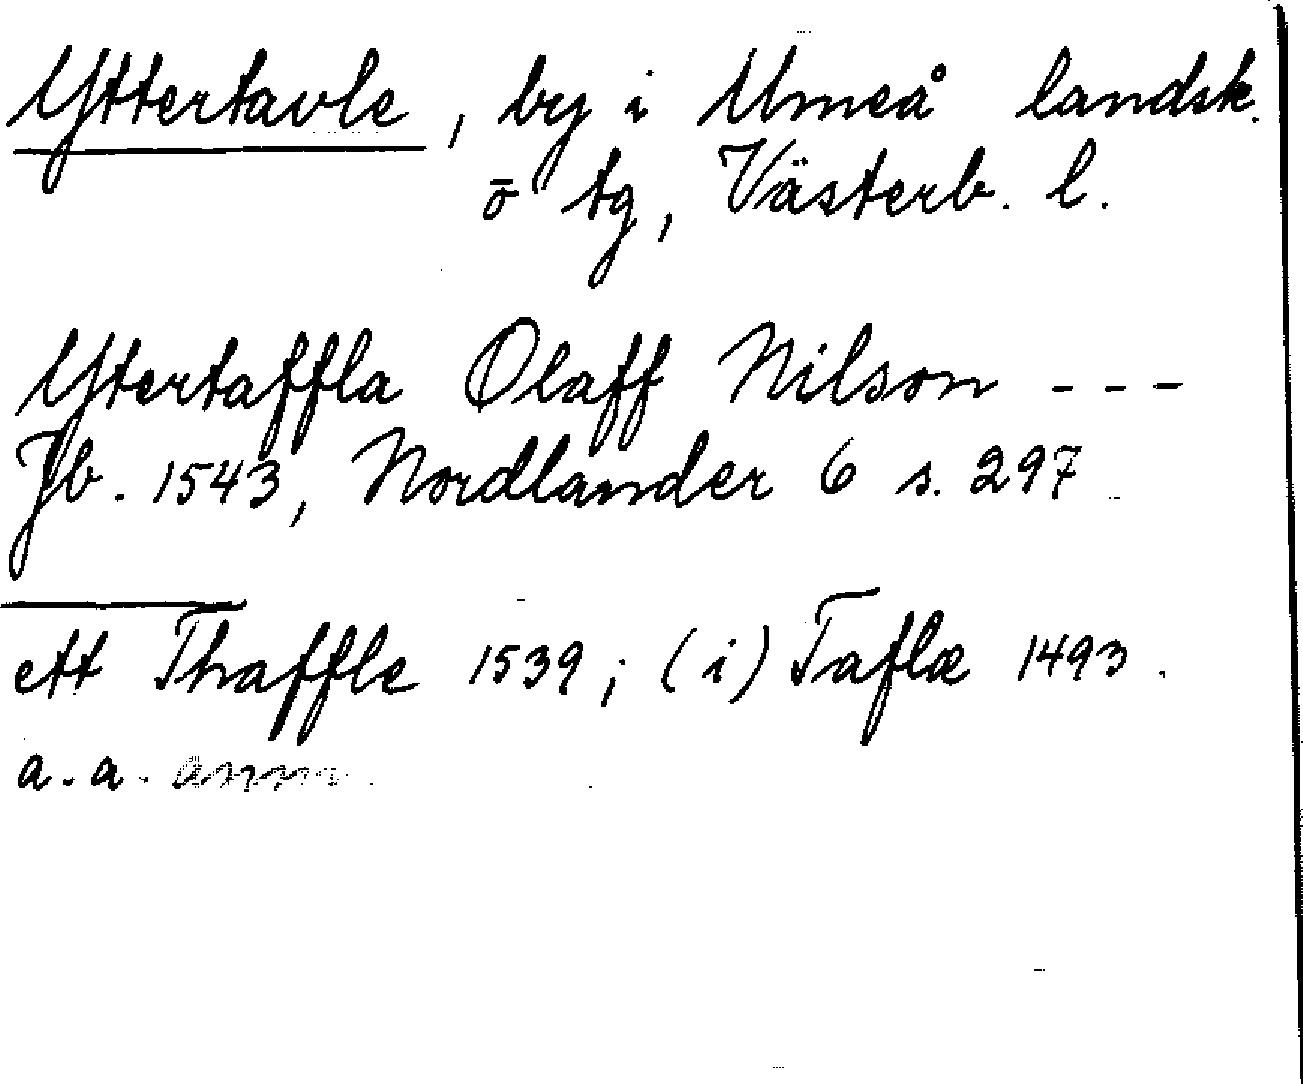 Yttertavle, by i Umeå landsk.
o tg, Västerb. l.
Ytertaffla Olaff Nilson - - -
Jb. 1543, Nordlander 6 s. 297
ett Thaffle 1539; (i) Taflæ 1493.
a. a. anm.